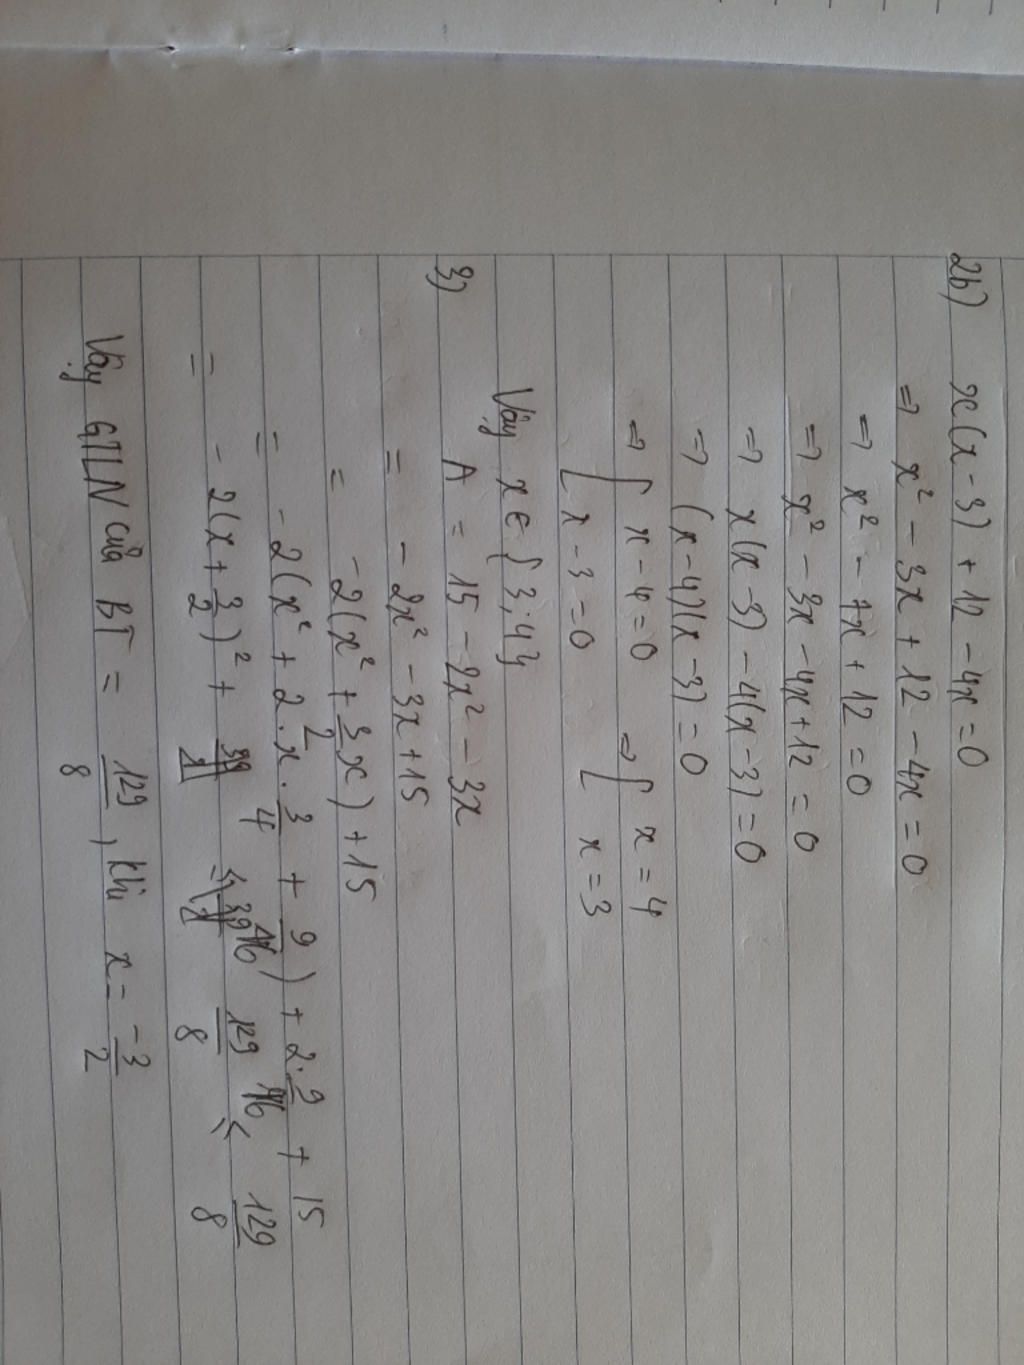 2b) x(x-3) + 12 - 4x = 0
=> x² - 3x + 12 - 4x = 0
=> x² - 7x + 12 = 0
=> x² - 3x - 4x + 12 = 0
=> x(x-3) - 4(x-3) = 0
=> (x-4)(x-3) = 0
=> [ x-4=0 => [ x=4
x-3=0 x=3
Vậy x ∈ {3;4}
3) A = 15 - 2x² - 3x
= - 2x² - 3x + 15
= - 2(x² + 3/2 x) + 15
= - 2(x² + 2.x.3/4 + 9/16) + 2.9/16 + 15
= - 2(x + 3/2)² + 129/8 ≤ 129/8
Vậy GTLN của BT = 129/8, khi x = -3/2